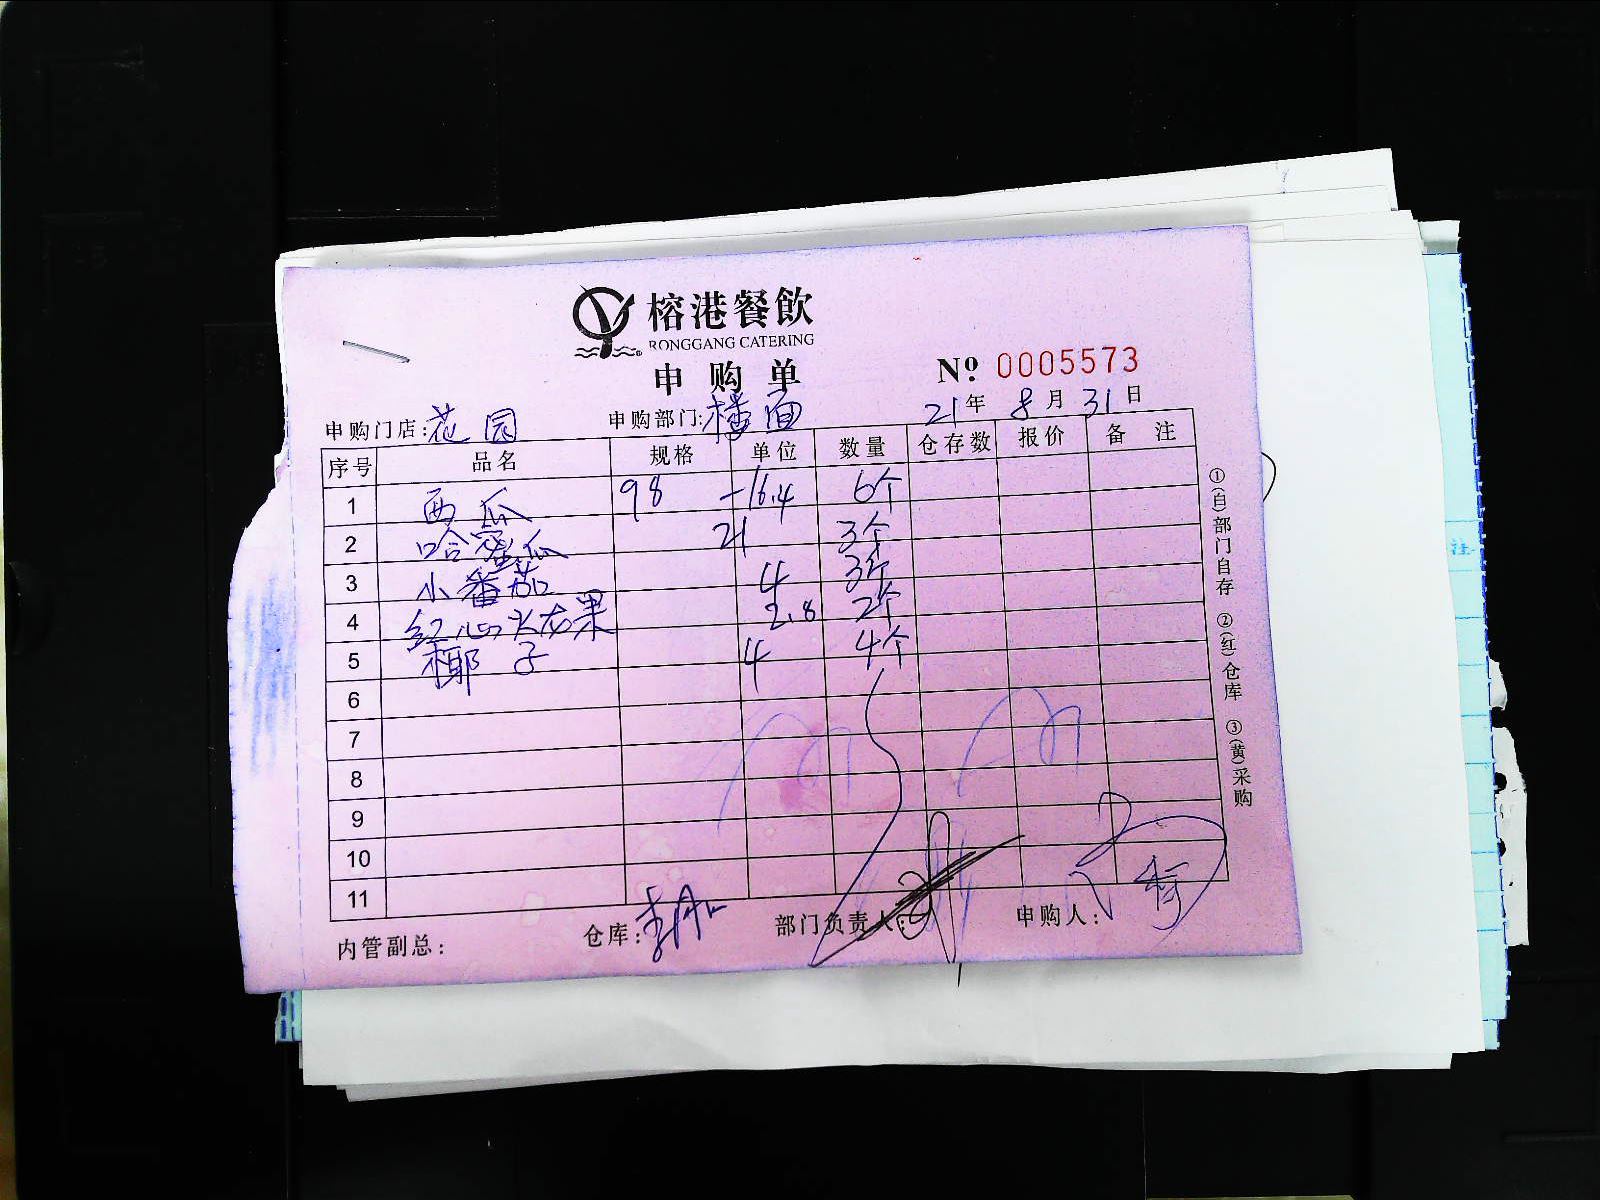 榕港餐飲
RONGGANG CATERING
申购单
№ 0005573
申购门店:花园 申购部门:楼面 21年 8月 31日
序号 品名 规格 单位 数量 仓存数 报价 备注
1 西瓜 98 -16.4 6个
2 哈蜜瓜 21 3个
3 小番茄 4 3个
4 红心火龙果 2.8 2个
5 椰子 4 4个
6
7
8
9
10
11
内管副总: 仓库: 部门负责人: 申购人:
①(白)部门自存 ②(红)仓库 ③(黄)采购
注